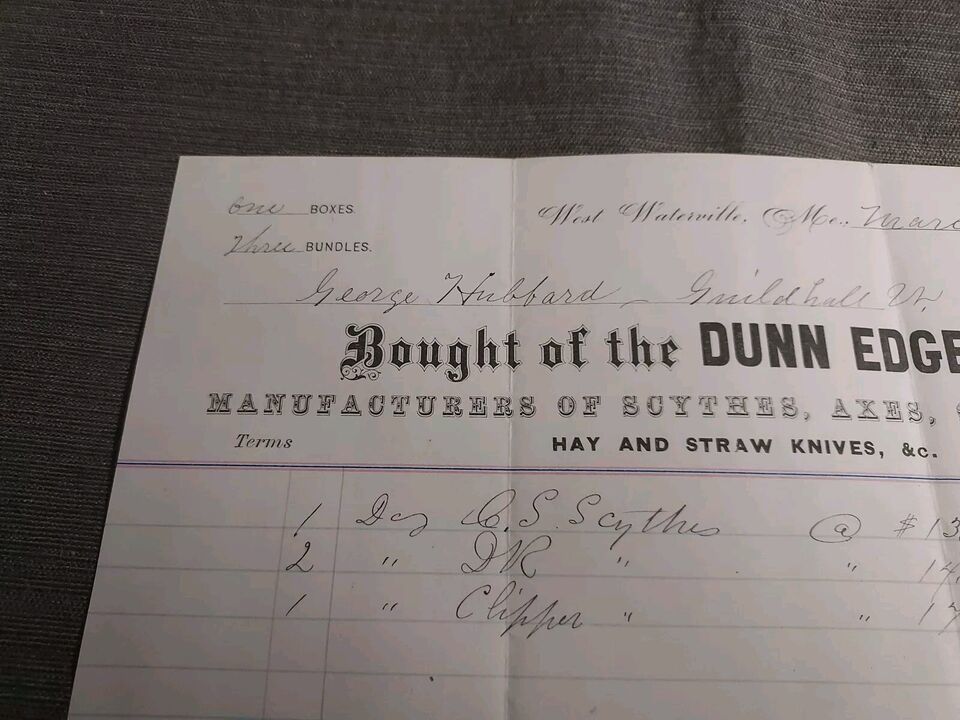 One BOXES.
West Waterville, Me.,
Three BUNDLES.
George Hubbard – Guildhall Vt
Bought of the DUNN EDGE
MANUFACTURERS OF SCYTHES, AXES,
Terms
HAY AND STRAW KNIVES, &c.
1 Doz C. S. Scythes @ $13
2 " DR " " 14
1 " Clipper " " 17